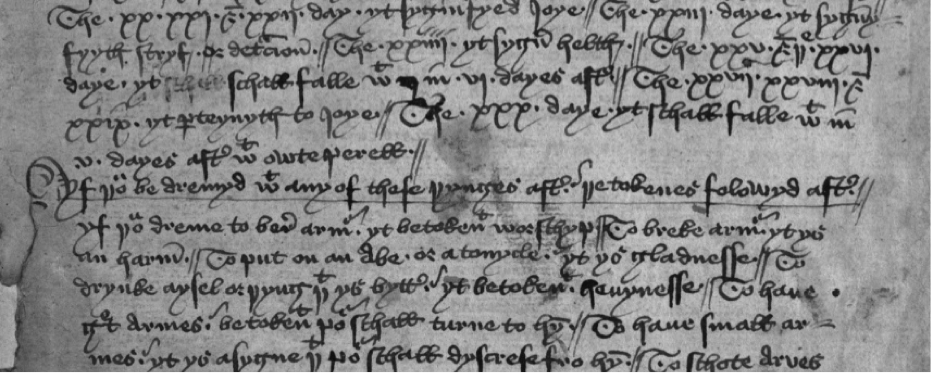 The · xx · xxi · & · xxii · day · yt sygnyfyed Joye · // The · xxiii · daye · yt sygny=
fyyth stryf · or detc̄ion · // The · xxiiii · yt sygn̄ helth · // The · xxv · & · xxvi ·
daye · yt schall falle wt in · vi · dayes aft // The · xxvii · xxviii · &
xxix · yt p̱teynyth to Joye · // The · xxx · daye · yt schall falle wt in
v · dayes aft wt owte perell · //
Yf you be dremyd wt any of these þynges aft þe tokenes folowyd aft //
yf you dreme to ber arm · yt betoken worschyp // To breke arm yt ys
an harm̄ · // To put on an Abe · or a tonycle · yt ys gladnesse · // To
drynke aysel or þyng þt ys bytt · yt betoken · heuynesse // To haue ·
gret Armes · betoken þo schall turne to hy · // To haue small ar=
mes · yt ys a sygne þt þo schall dyscrese fro hy · // To schote Arves